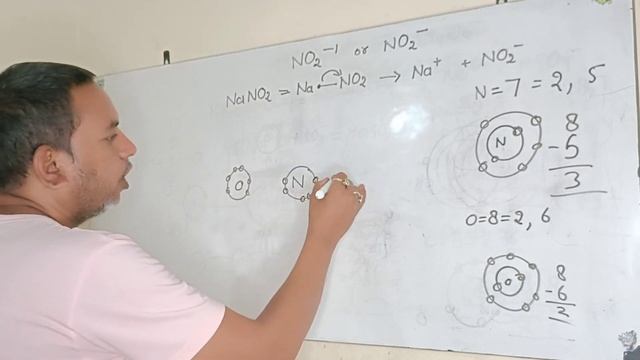 NO₂⁻¹ or NO₂⁻
NaNO₂ = Na NO₂ → Na⁺ + NO₂⁻
N = 7 = 2, 5
N
8
- 5
3
O
N
O = 8 = 2, 6
O
8
- 6
2